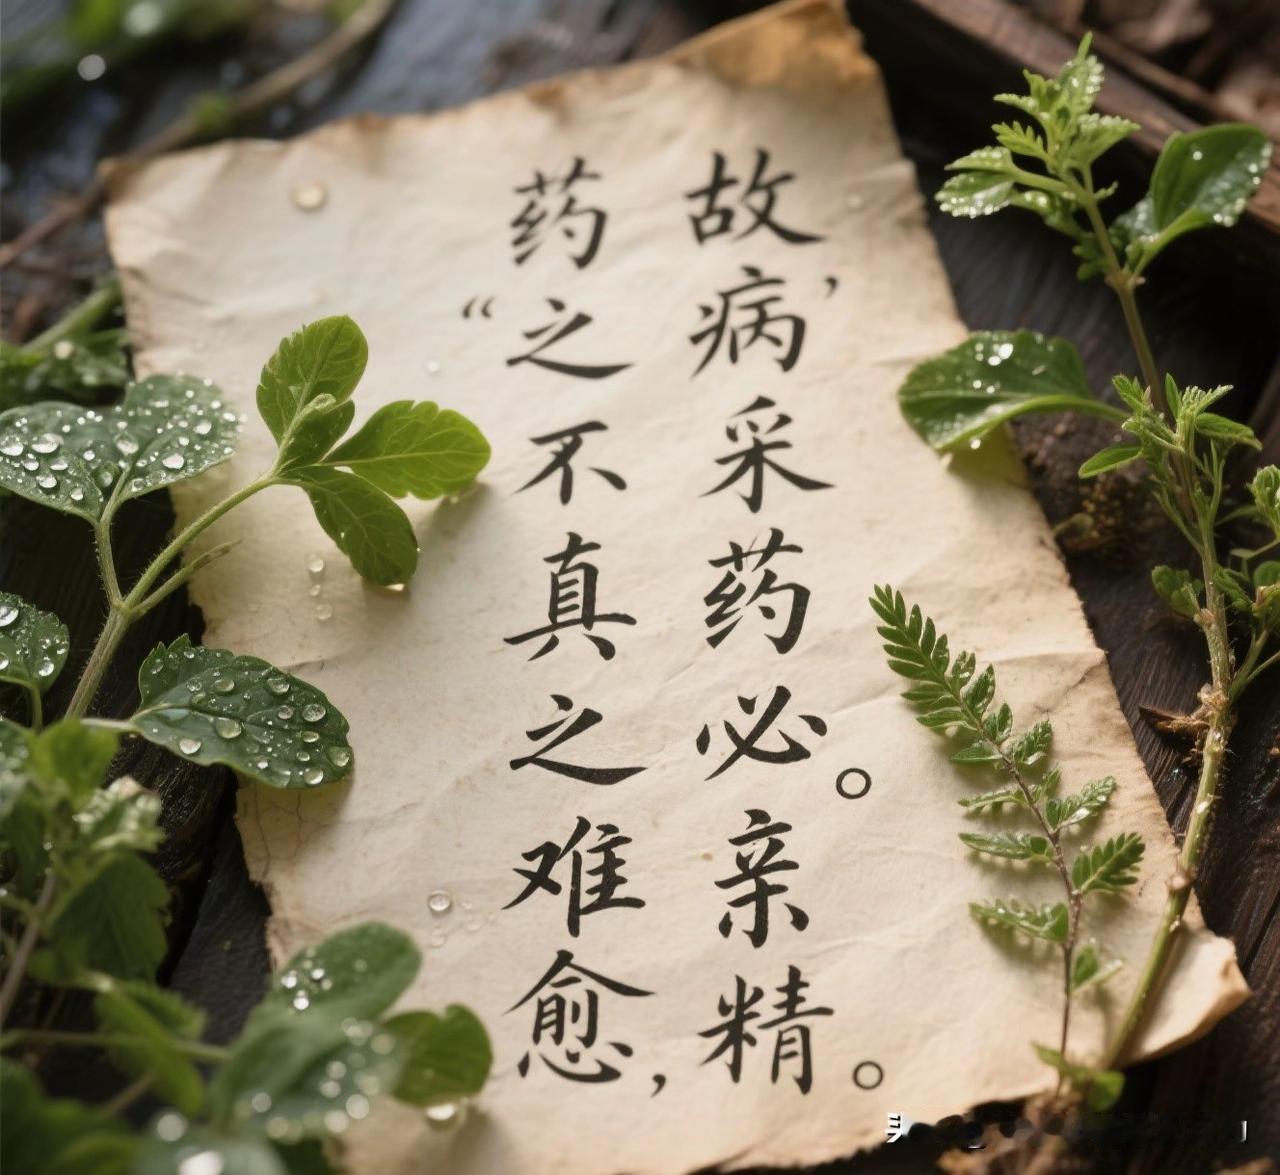 药“之不真之难愈，
故，病采药必。亲精。